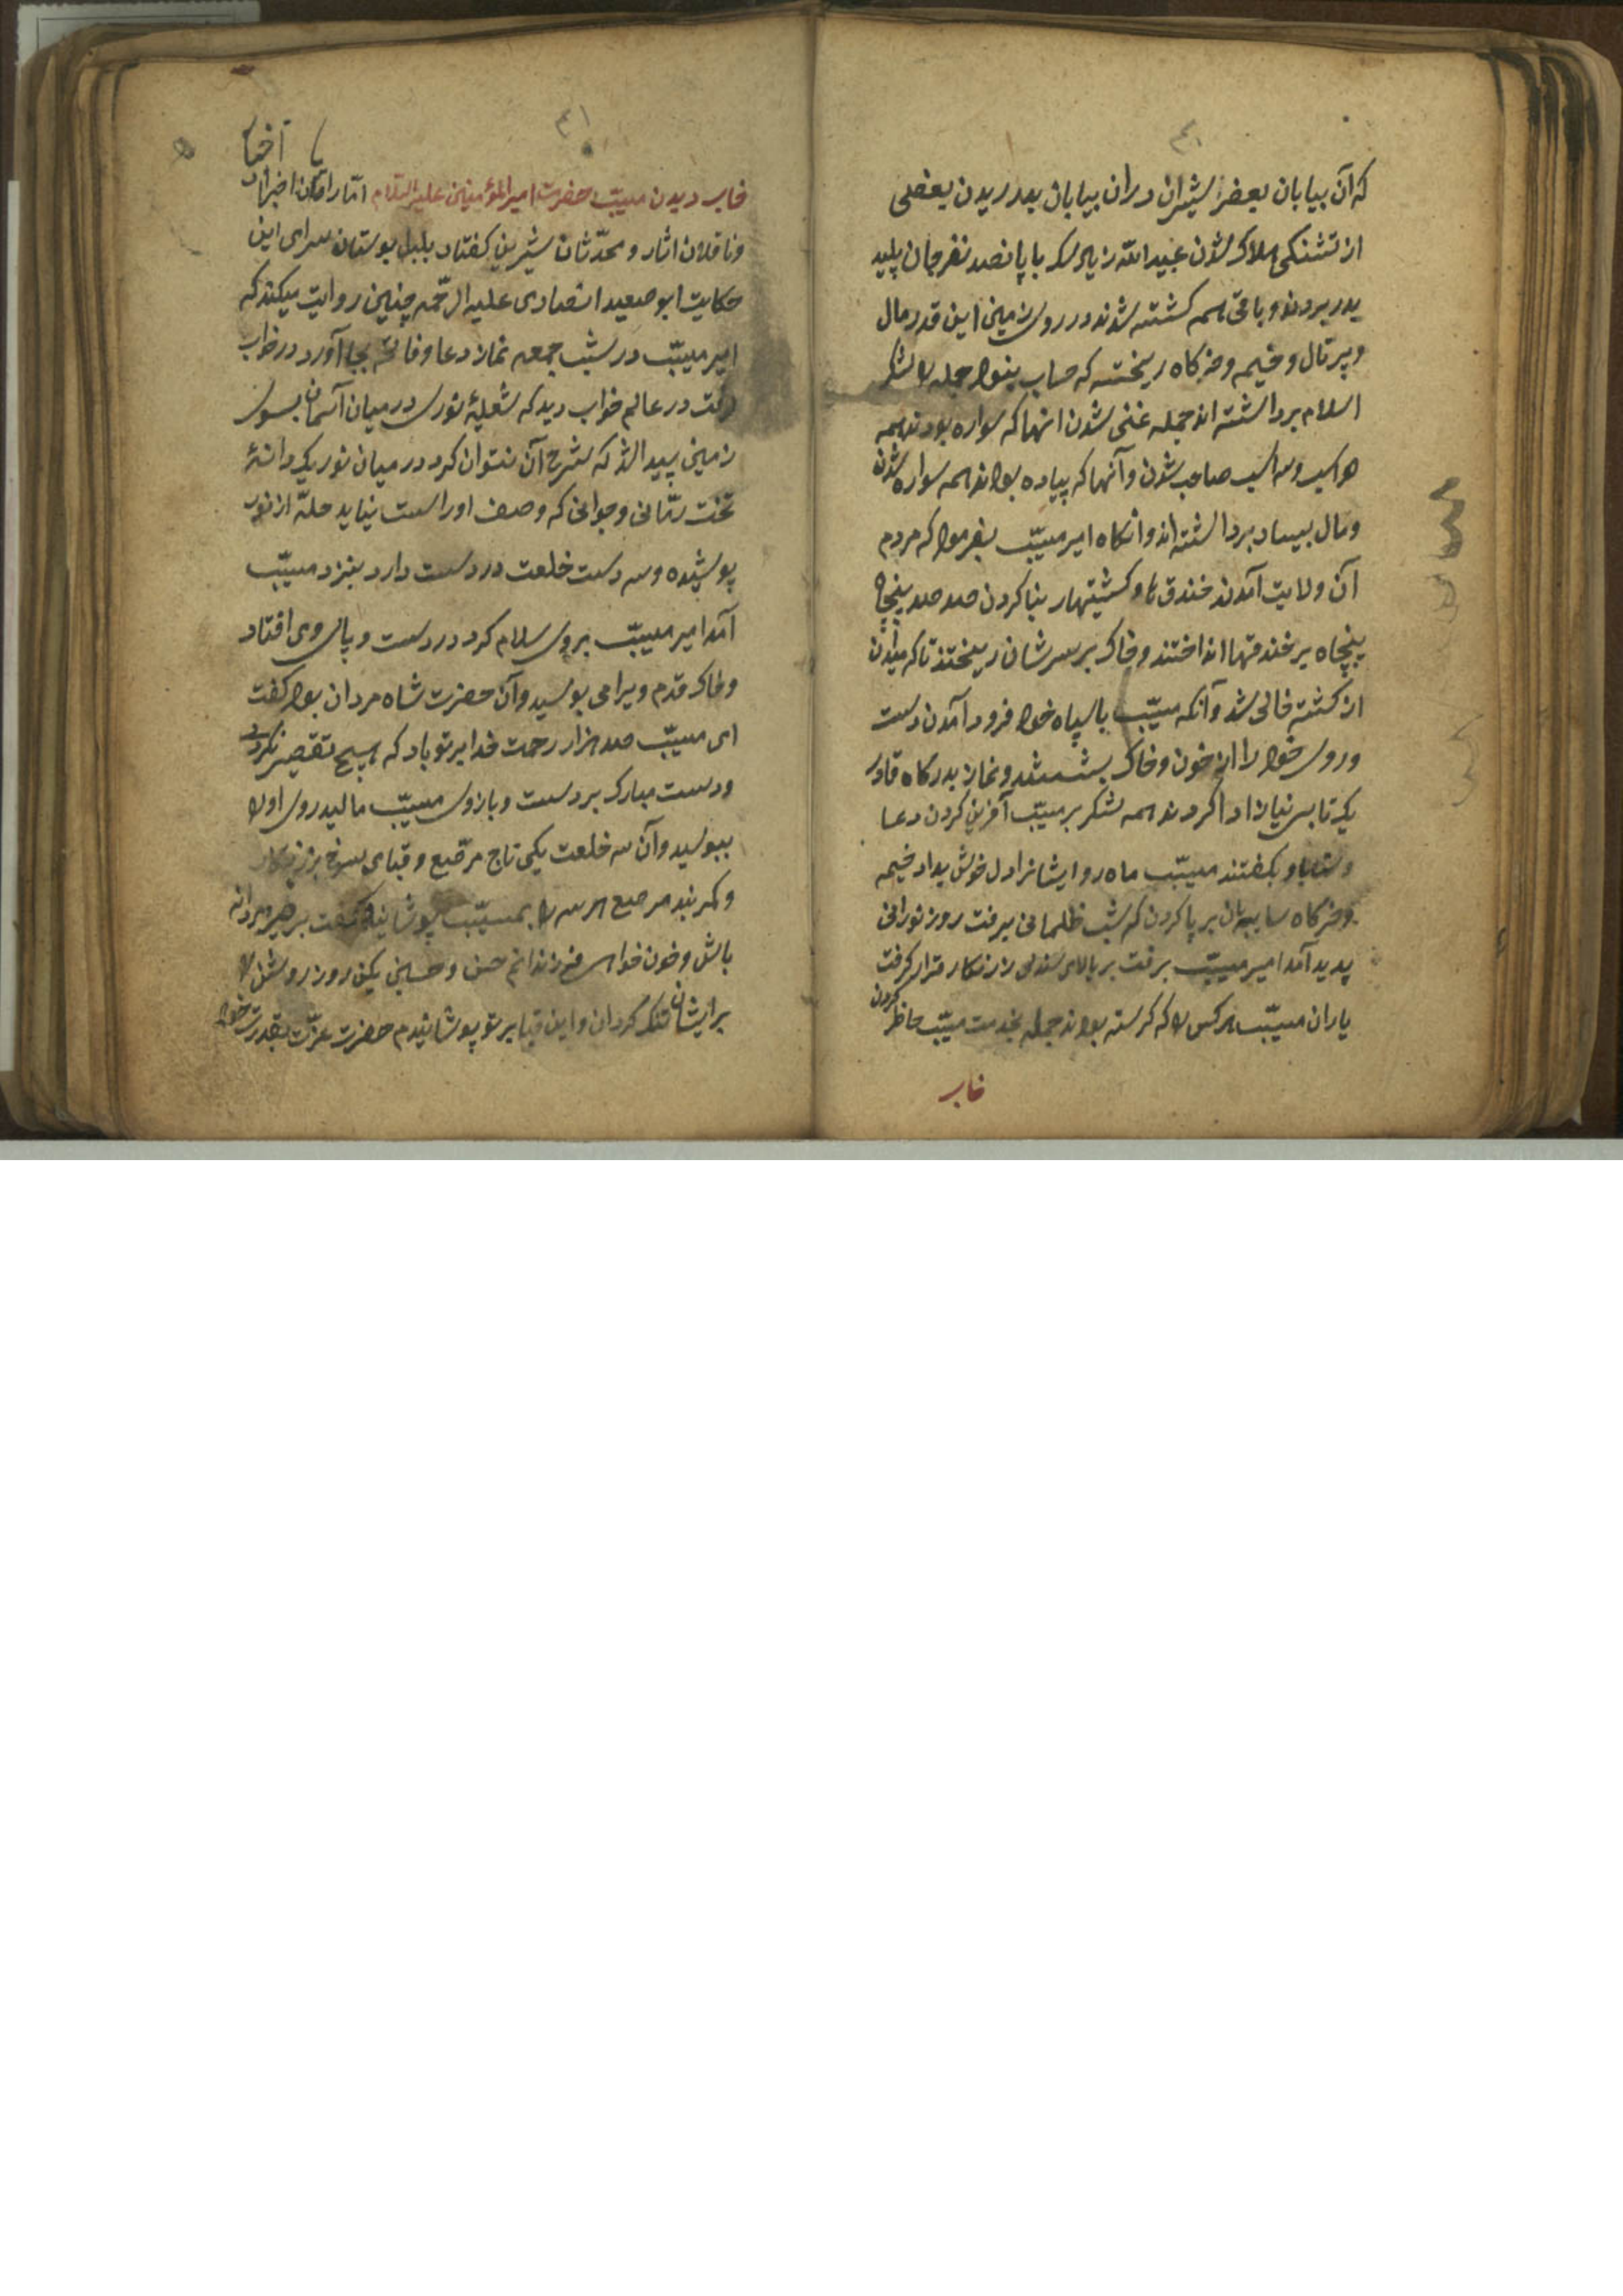 که آن بیابان بعضی شیران دران بیابان بدریدن بعضی
از تشنکی هلاک شدن عبیدالله زیاد با پانصد نفر جان پلید
بدر بردند و باقی همه کشته شدند در روی زمین این قدر مال
و پرتال و خیمه و خرکاه ریخته که حساب نبود جمله را لشکر
اسلام برداشته اند جمله غنی شدن انها که سواره بودند همه
دو اسب و سه اسب صاحب شدن و آنها که پیاده بودند همه سواره شدن
و مال بسیار برداشته اند وانکاه امیر مسیّب بفرمود که مردم
آن ولایت آمدند خندق ها و کشتیهار بنا کردن صد صد پنجاه
پنجاه بر خندقها انداختند و خاک بر سرشان ریختند تا که میدان
از کشته خالی شد و آنکه مسیّب با سپاه خود فرود آمدن دست
و روی خود را از خون و خاک بشستند و نماز بدرکاه قادر
یکتا بی نیاز ادا کردند همه لشکر بر مسیّب آفرین کردن دعا
و ثنا باو بکفتند مسیّب ماه رو ایشانرا دل خوش بداد خیمه
و خرکاه سایبان بر پا کردن که شب ظلمانی برفت روز نورانی
پدید آمد امیر مسیّب برفت بر بالای صندلی زرنکار قرار کرفت
یاران مسیّب هرکس را که کرسته بودند جمله بخدمت مسیّب حاظر کردن
خابر
٤١
خابر دیدن مسیّب حضرت امیرالمؤمنین علیه السّلام امّا راویان اخبار
و ناقلان اثار و محدّثان شیرین کفتار بلبل بوستان سرای این
حکایت ابو صعید انصاری علیه الرّحمه چنین روایت میکند که
امیر مسیّب در شب جمعه نماز دعا و فاتحه بجا آورد در خواب
رفت در عالم خواب دید که شعلۀ نوری در میان آسمان بسوی
زمین پیدا شد که شرح آن نتوان کرد در میان نور یکدانۀ
تخت رمّانی و جوانی که وصف او راست نیاید حلّه از نور
پوشیده و سه دست خلعت در دست دارد بنزد مسیّب
آمد امیر مسیّب بروی سلام کرد در دست و پای وی افتاد
و خاک قدم ویرا می بوسید و آن حضرت شاه مردان بود کفت
ای مسیّب صد هزار رحمت خدا بر تو باد که هیچ تقصیر نکردی
و دست مبارک بر دست و بازوی مسیّب مالید روی اورا
ببوسید و آن سه خلعت یکی تاج مرصّع و قبای سرخ زرنکار
و کمربند مرصع هر سه را بمسیّب پوشانید کفت برخیز مردانه
باش و خون خواه فرزندانم حسن و حسین یکن روز روشن را
بر ایشان تنک کردان و این قبا بر تو پوشانیدم حضرت عزّت بقدرت خود